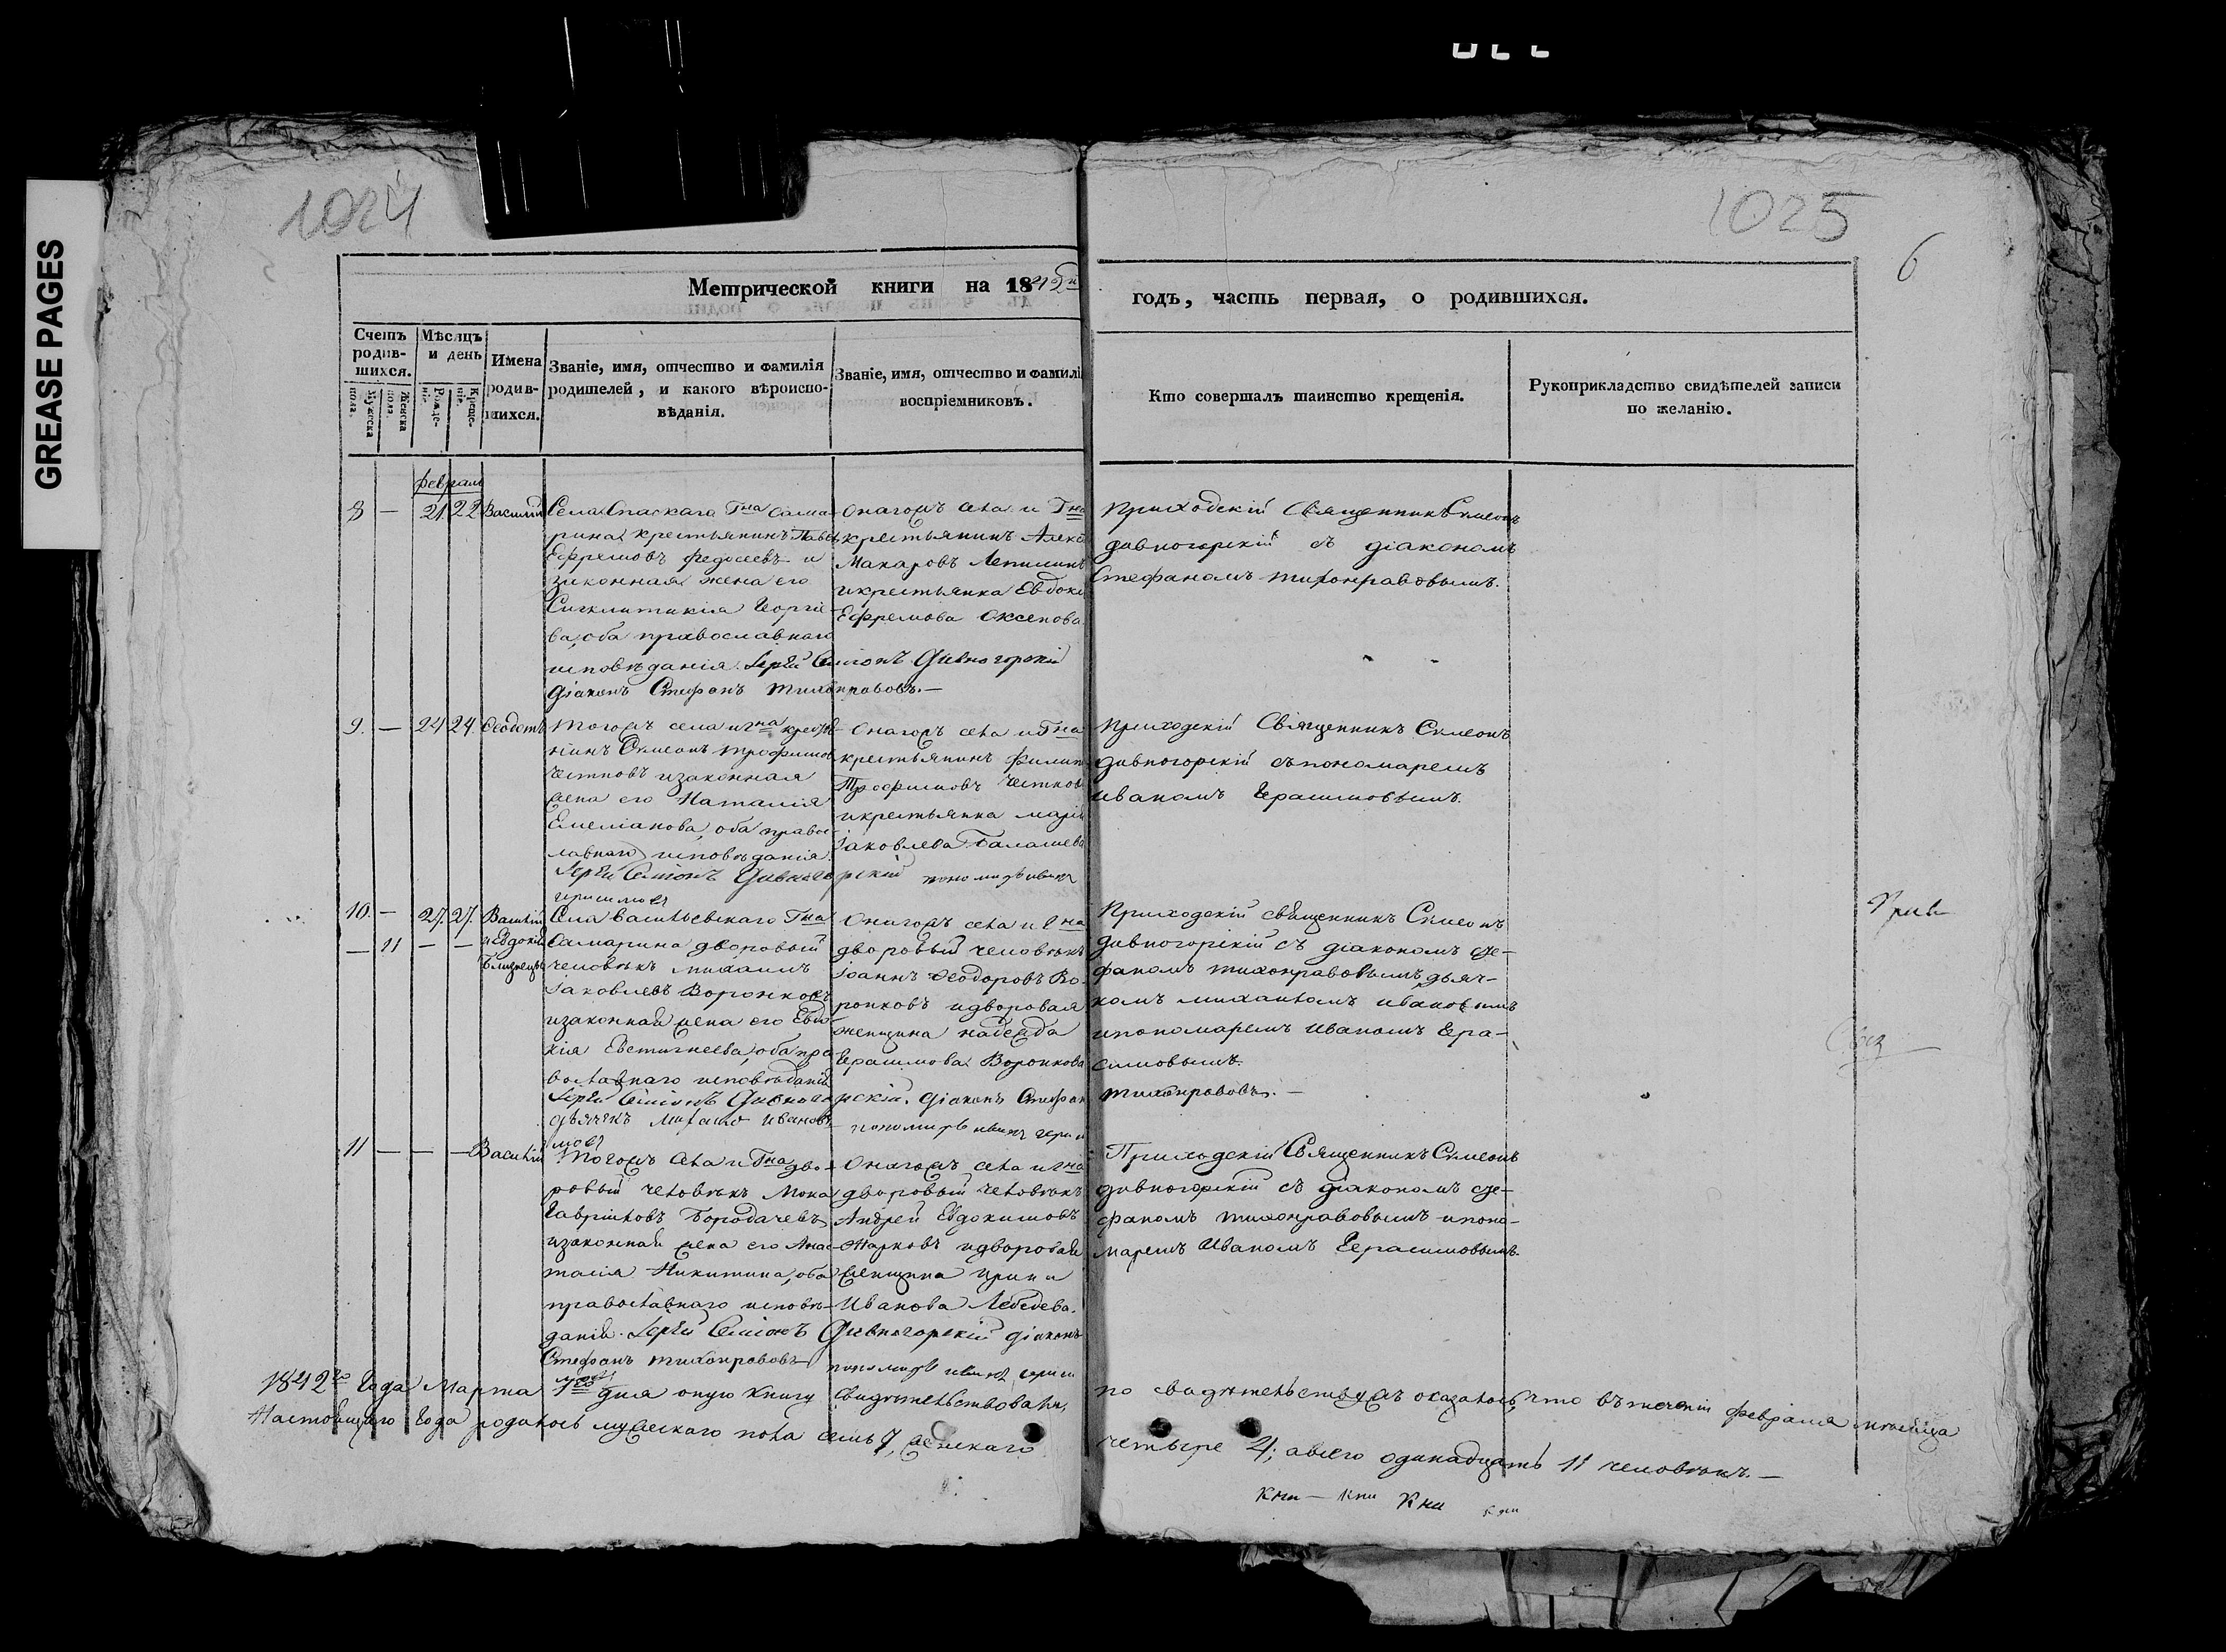 GREASE PAGES
1024
1025
6
Метрической книги на 1842й
годъ, часть первая, о родившихся.
Счетъ родив-шихся.
Мужеска пола.
Женска пола.
Мѣсяцъ и день
Рожде-нія.
Креще-нія.
Имена родив-шихся.
Званіе, имя, отчество и фамилія
родителей, и какого вѣроиспо-
вѣданія.
Званіе, имя, отчество и фамилі
воспріемниковъ.
Кто совершалъ таинство крещенія.
Рукоприкладство свидѣтелей записи
по желанію.
февраль
8 — 21. 22 Василій
Села Спаскаго Гна Сама-
рина крестьянинъ Павелъ
Ефремовъ Федосеевъ и
законная жена его
Сигклитикія Георгіе-
ва, оба православнаго
исповѣданія. Іерей Симіонъ Дивногорскій
Діаконъ Стефанъ Тихонравовъ. —
Онагожъ села и Гна
крестьянинъ Алекс
Макаровъ Лепилинъ
икрестьянка Евдокі
Ефремова Аксенова
Приходскій Священникъ Симеонъ
дивногорскій съ діакономъ
Стефаномъ тихонравовымъ.
9. — 24 24. Ѳеодотъ
Тогожъ села и гна крестья-
нинъ Симеонъ Трофимовъ
Честновъ изаконная
жена его Наталія
Емеліанова, оба правос-
лавнаго исповѣданія.
Іерей Симіонъ Дивногорскій пономарь иванъ
герасимовъ
Онагожъ села и Гна
крестьянинъ Филип
Трофимовъ Честновъ
икрестьянка марія
іаковлева Балашева
Приходскій Священникъ Симеонъ
дивногорскій съ пономаремъ
иваномъ Герасимовымъ.
10. — 27. 27. Василій
— 11 — — иевдокія
Близнецы
Села васильевскаго Гна
Самарина дворовый
человѣкъ михаилъ
Іаковлевъ Воронковъ
изаконная жена его Евдо-
кія Евстигнеева, оба пра-
вославнаго исповѣданія
Іерей Симіонъ Дивногорскій. Діаконъ Стефанъ Тихонравовъ. —
дьячекъ Михаило Ивановъ пономарь иванъ гераси
мовъ
Онагожъ села и Гна
дворовый человѣкъ
іоаннъ Ѳеодоровъ Во-
ронковъ идворовая
женщина надежда
Герасимова Воронкова
Приходскій священникъ Симеонъ
дивногорскій съ діакономъ сте-
фаномъ тихонравовымъ, дьяч-
комъ михаиломъ ивановымъ
ипономаремъ иваномъ Гера-
симовымъ.
11 — — — Василій
Тогожъ села и Гна дво-
ровый человѣкъ Мока
Гавріиловъ Бородачевъ
изаконная жена его Анас-
тасія Никитина, оба
православнаго исповѣ-
данія. Іерей Симіонъ Дивногорскій діаконъ
Стефанъ Тихонравовъ пономарь иванъ гераси
мовъ
Онагожъ села и гна
дворовый человѣкъ
Андрей Евдокимовъ
Марковъ идворовая
женщина Ирина
Иванова Лебедева.
Приходскій Священникъ Симеонъ
дивногорскій съ діакономъ сте-
фаномъ тихонравовымъ ипоно-
маремъ Иваномъ Герасимовымъ.
1842го Года Марта 1го дня оную книгу свидѣтельствовали, по свидѣтельствужъ оказалось, что въ теченіи февраля мѣсяца
Настоящаго Года родилось мужескаго пола семь 7, женскаго четыре 4; авсего одинадцать 11 человѣкъ. —